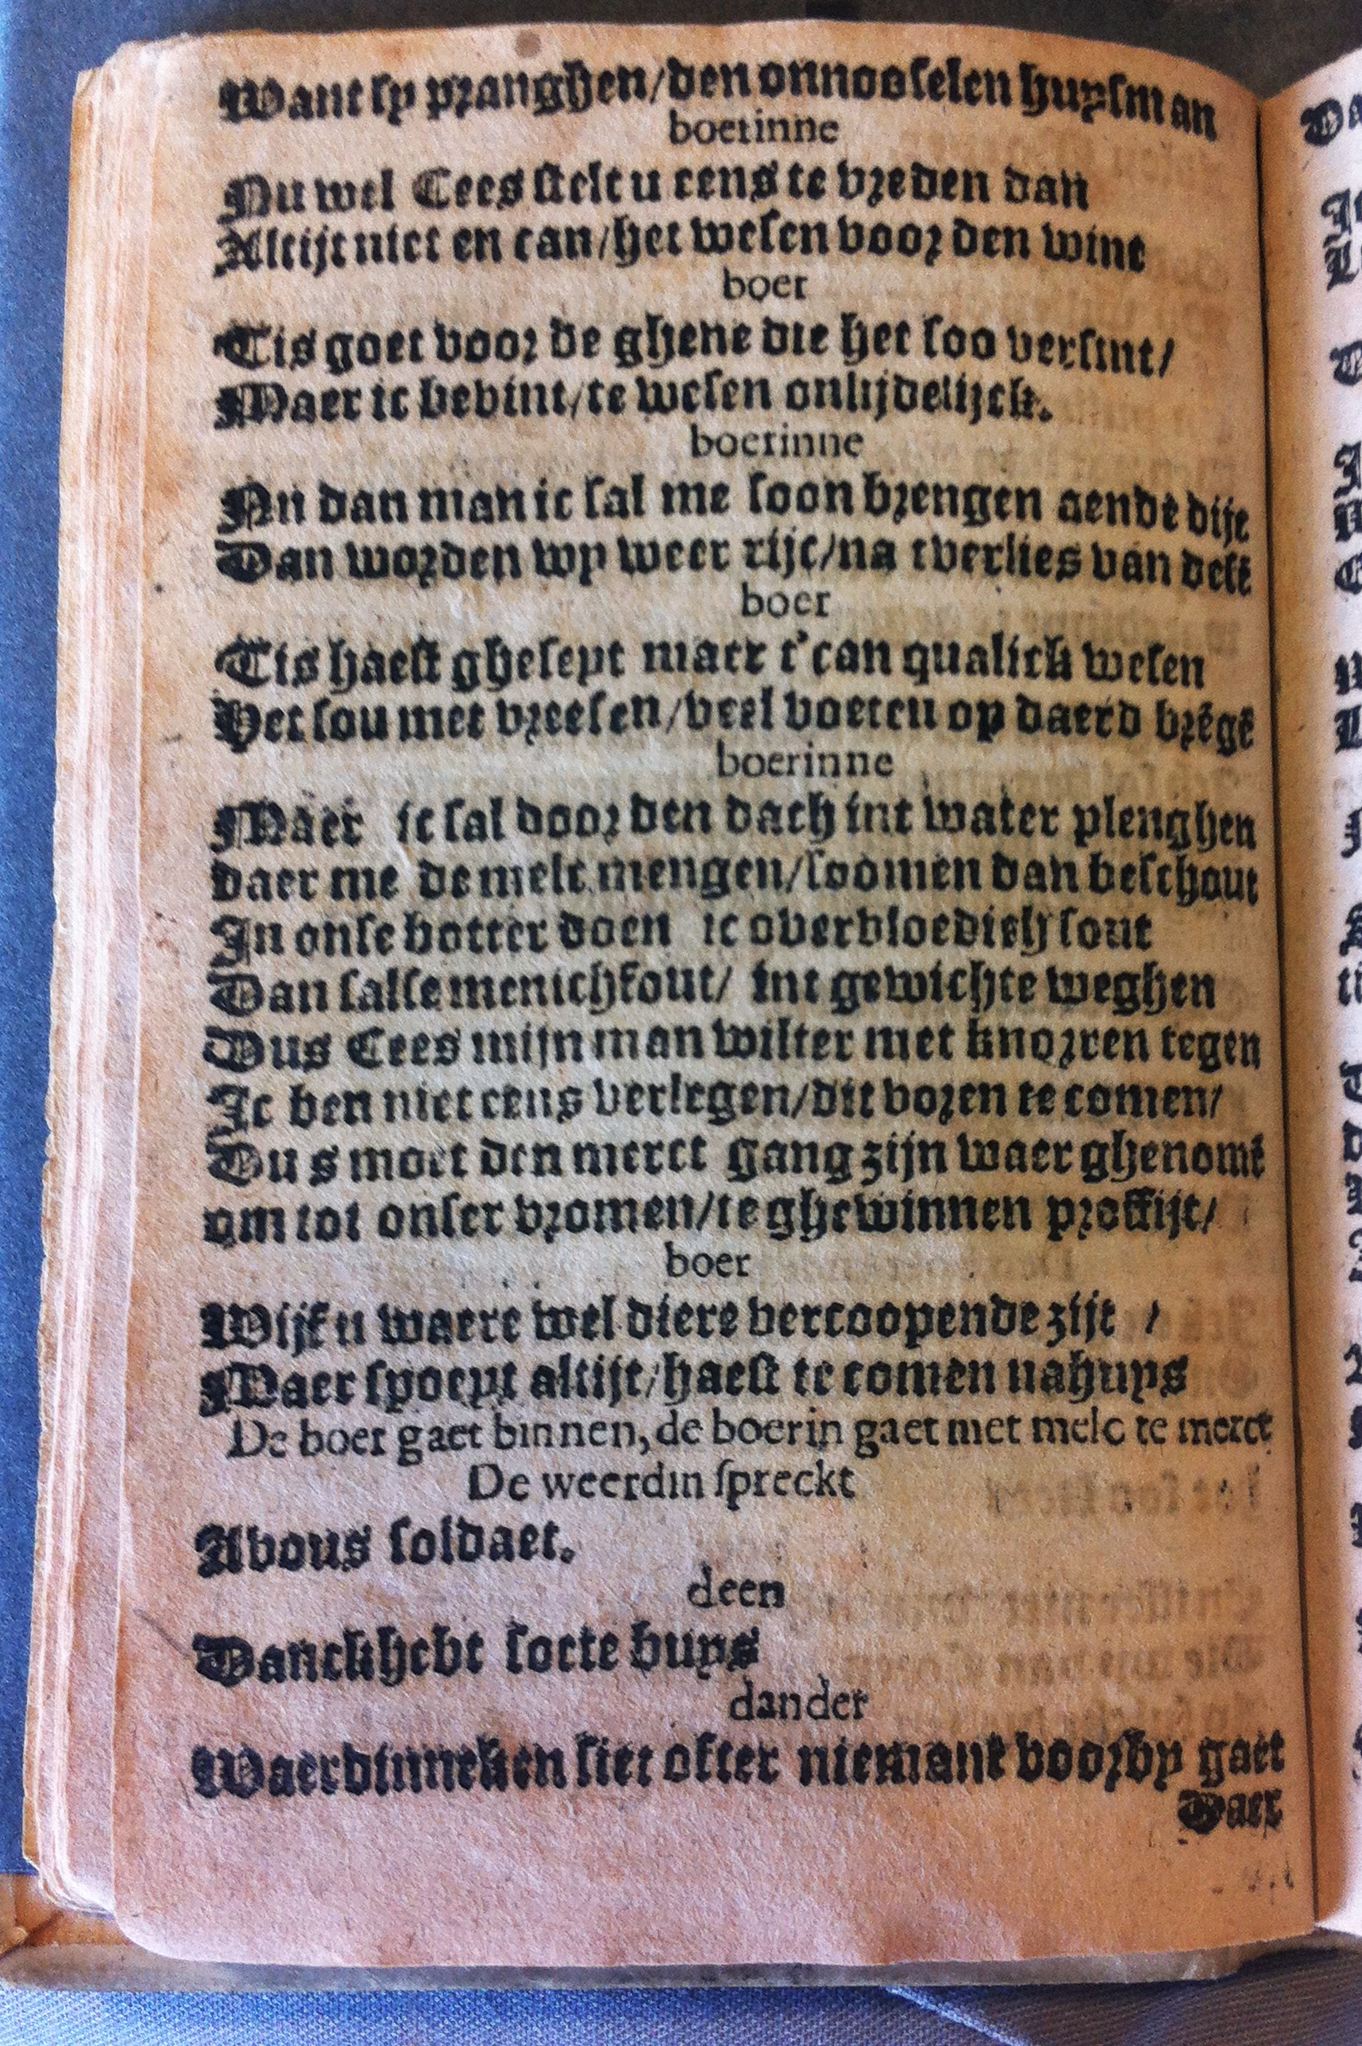 Want sy pranghen/den onnooselen huysman
boerinne
Nu wel Cees stelt u eens te vreden dan
Altijt niet en can/het wesen voor den wint
boer
Tis goet voor de ghene die het soo versint/
Maer ic bevint/te wesen onlijdelijck.
boerinne
Nu dan man ic sal me soon brengen aendē dijc
Dan worden wy weer rijc/na tverlies van desē
boer
Tis haest gheseyt maer t'can qualick wesen
Het sou met vreesen/veel boeren op daerd brēgē
boerinne
Maer ic sal door den dach int water plenghen
daer me de melc mengen/soomen dan beschout
In onse botter doen ic overvloedich sout
Dan salse menichfout/ int gewichte weghen
Dus Cees mijn man wilter met knorren tegen
Ic ben niet eens verlegen/dit voren te comen/
Dus moet den merct gang zijn waer ghenomē
om tot onser vromen/te ghewinnen proffijt/
boer
Wijf u waere wel diere vercoopende zijt /
Maer spoeyt altijt/haest te comen nahuys
De boer gaet binnen, de boerin gaet met melc te merct
De weerdin spreckt
Avous soldaet.
deen
Danckhebt soete buys
dander
Waerdinneken siet ofter niemant voorby gaet
Waer